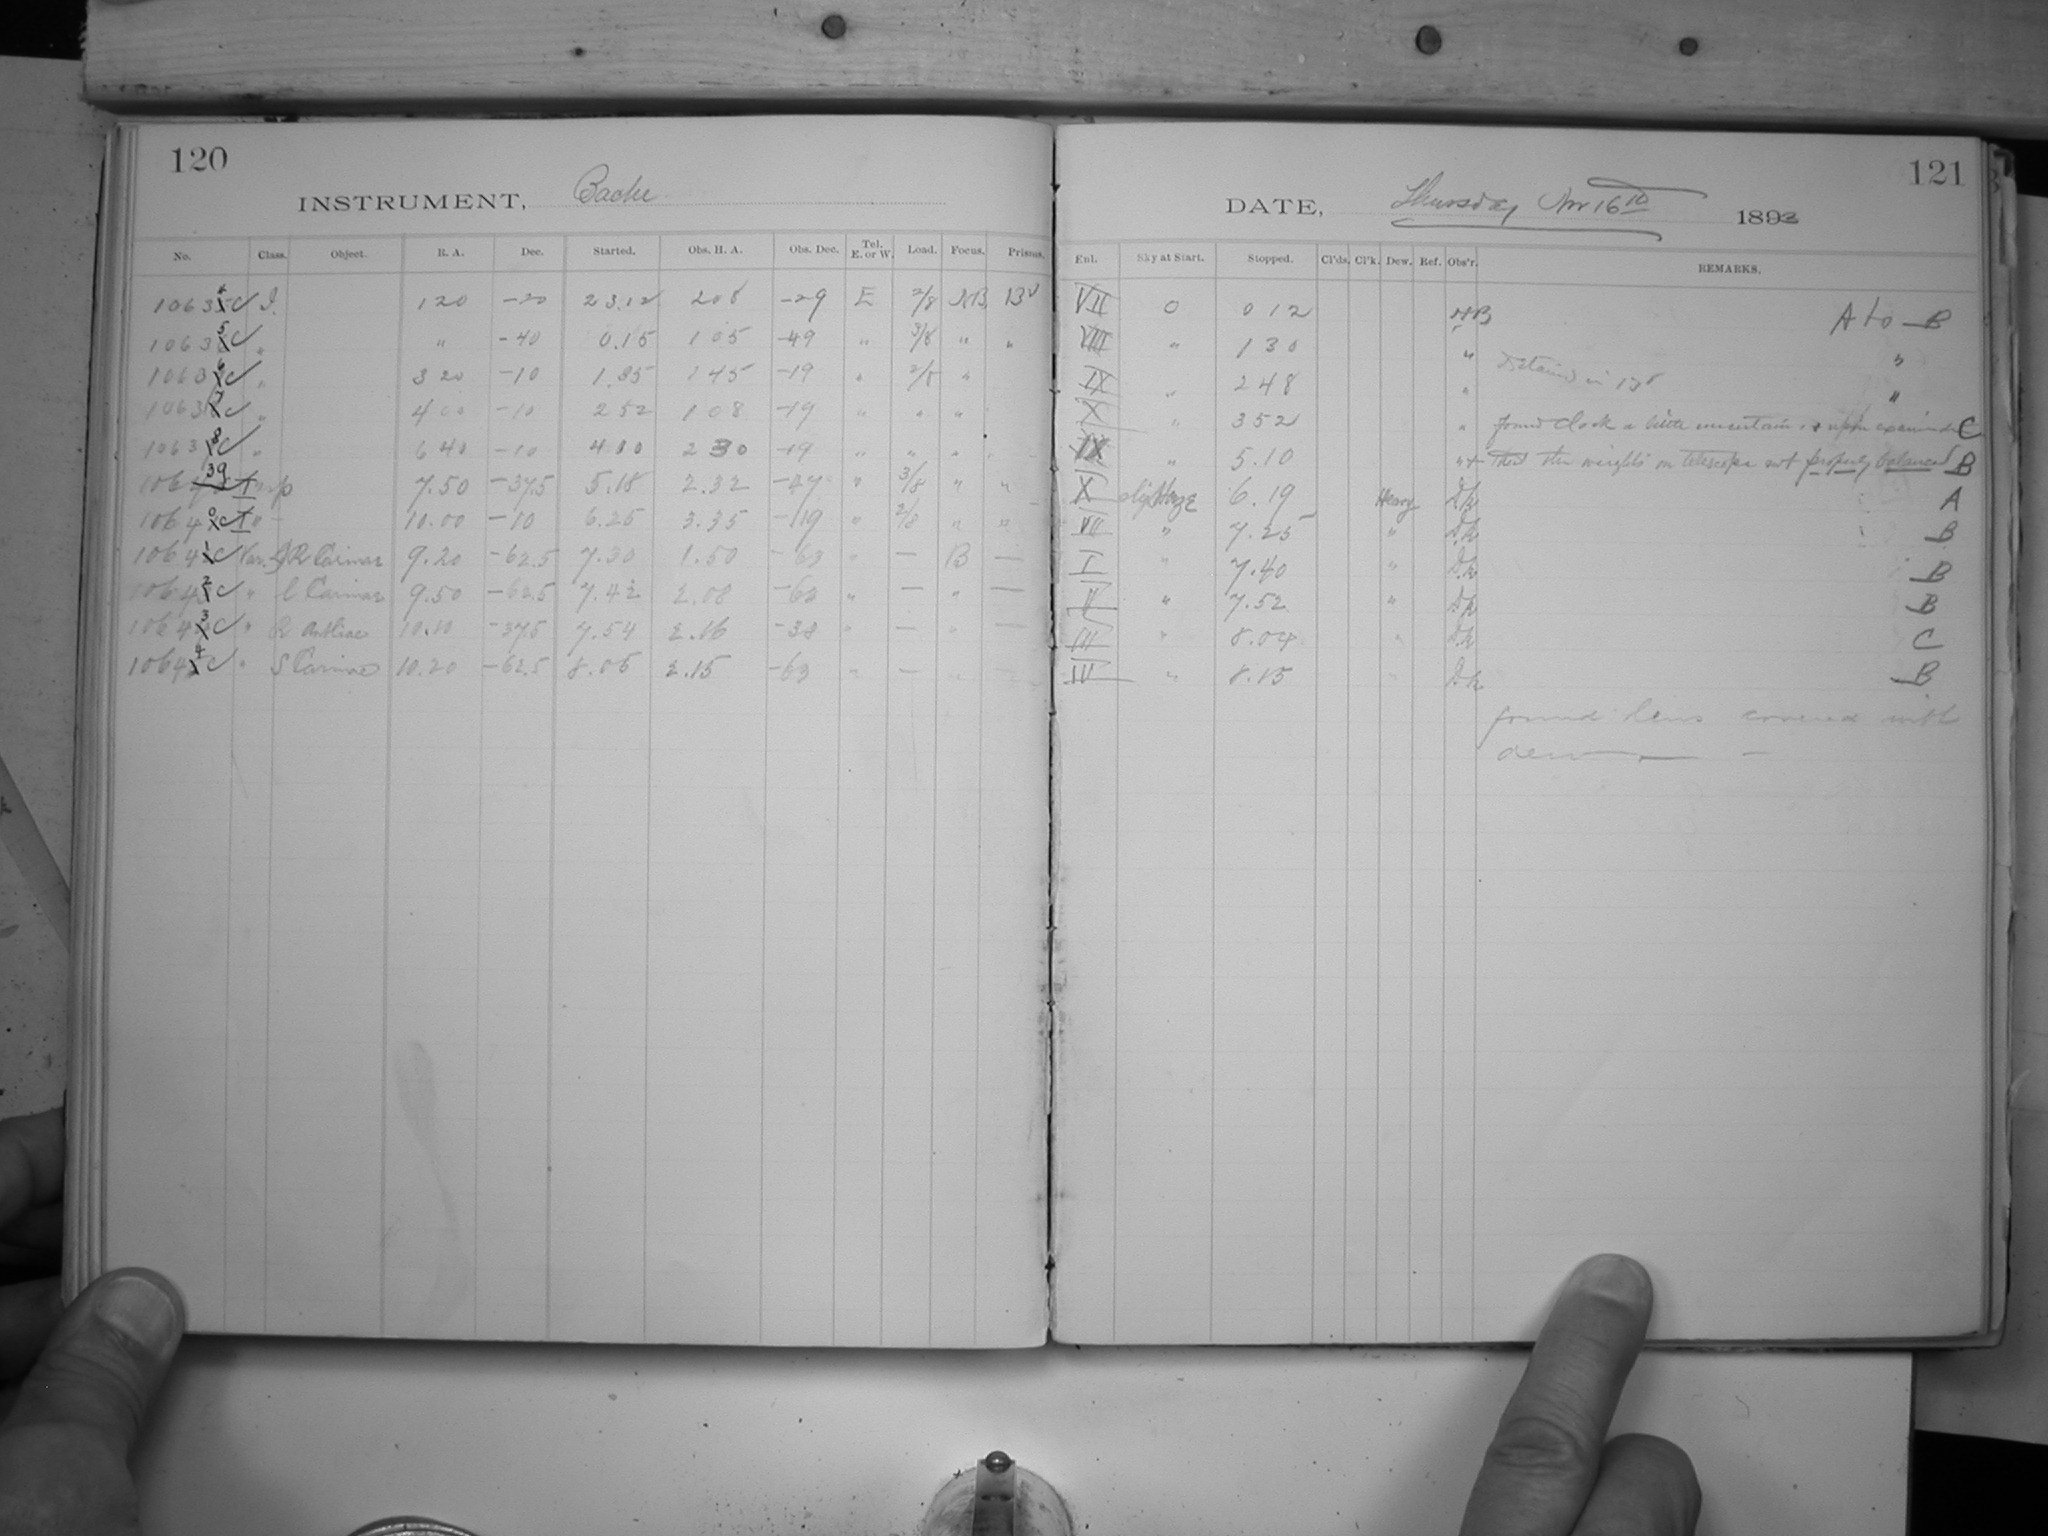 120
INSTRUMENT, Bache
No. Class. Object. R. A. Dec. Started. Obs. H. A. Obs. Dec. Tel. E. or W. Load. Focus. Prisms.
10634 C I. 120 -20 23.12 208 -29 E 2/8 NB
10635 C " " -40 0.15 105 -49 " 3/8 " "
10636 C " 3 20 -10 1.35 145 -19 " 2/8 "
10637 C " 4 00 -10 2 52 1 08 -19 " " "
10638 C " 6 40 -10 4 00 2 30 -19 " " "
10639 7.50 -37.5 5.18 2.32 -47 " 3/8 " "
10640 C " 10.00 -10 6.25 3.35 -19 " 2/8 " "
10641 C Var. R Carinae 9.20 -62.5 7.30 1.50 -63 " — B —
10642 C " l Carinae 9.50 -62.5 7.42 2.08 -63 " — " —
10643 C " R Antliae 10.10 -37.5 7.54 2.16 -38 " — " —
10644 C " S Carinae 10.20 -62.5 8.05 2.15 -63 " —
121
DATE, Thursday Nov 16th 1893
Enl. Sky at Start. Stopped. Cl'ds. Cl'k. Dew. Ref. Obs'r. REMARKS.
VII 0 0 12 A to B
VIII " 1 30 " "
IX " 2 48 " "
X " 3 52 " found clock a little uncertain & upon examined C
" 5.10 that the weights on telescope not properly balanced B
X slight Haze 6.19 Heavy A
VII " 7.25 " B
I " 7.40 " B
II " 7.52 " B
III " 8.04 " C
" 8.15 " B
found lens covered with
dew